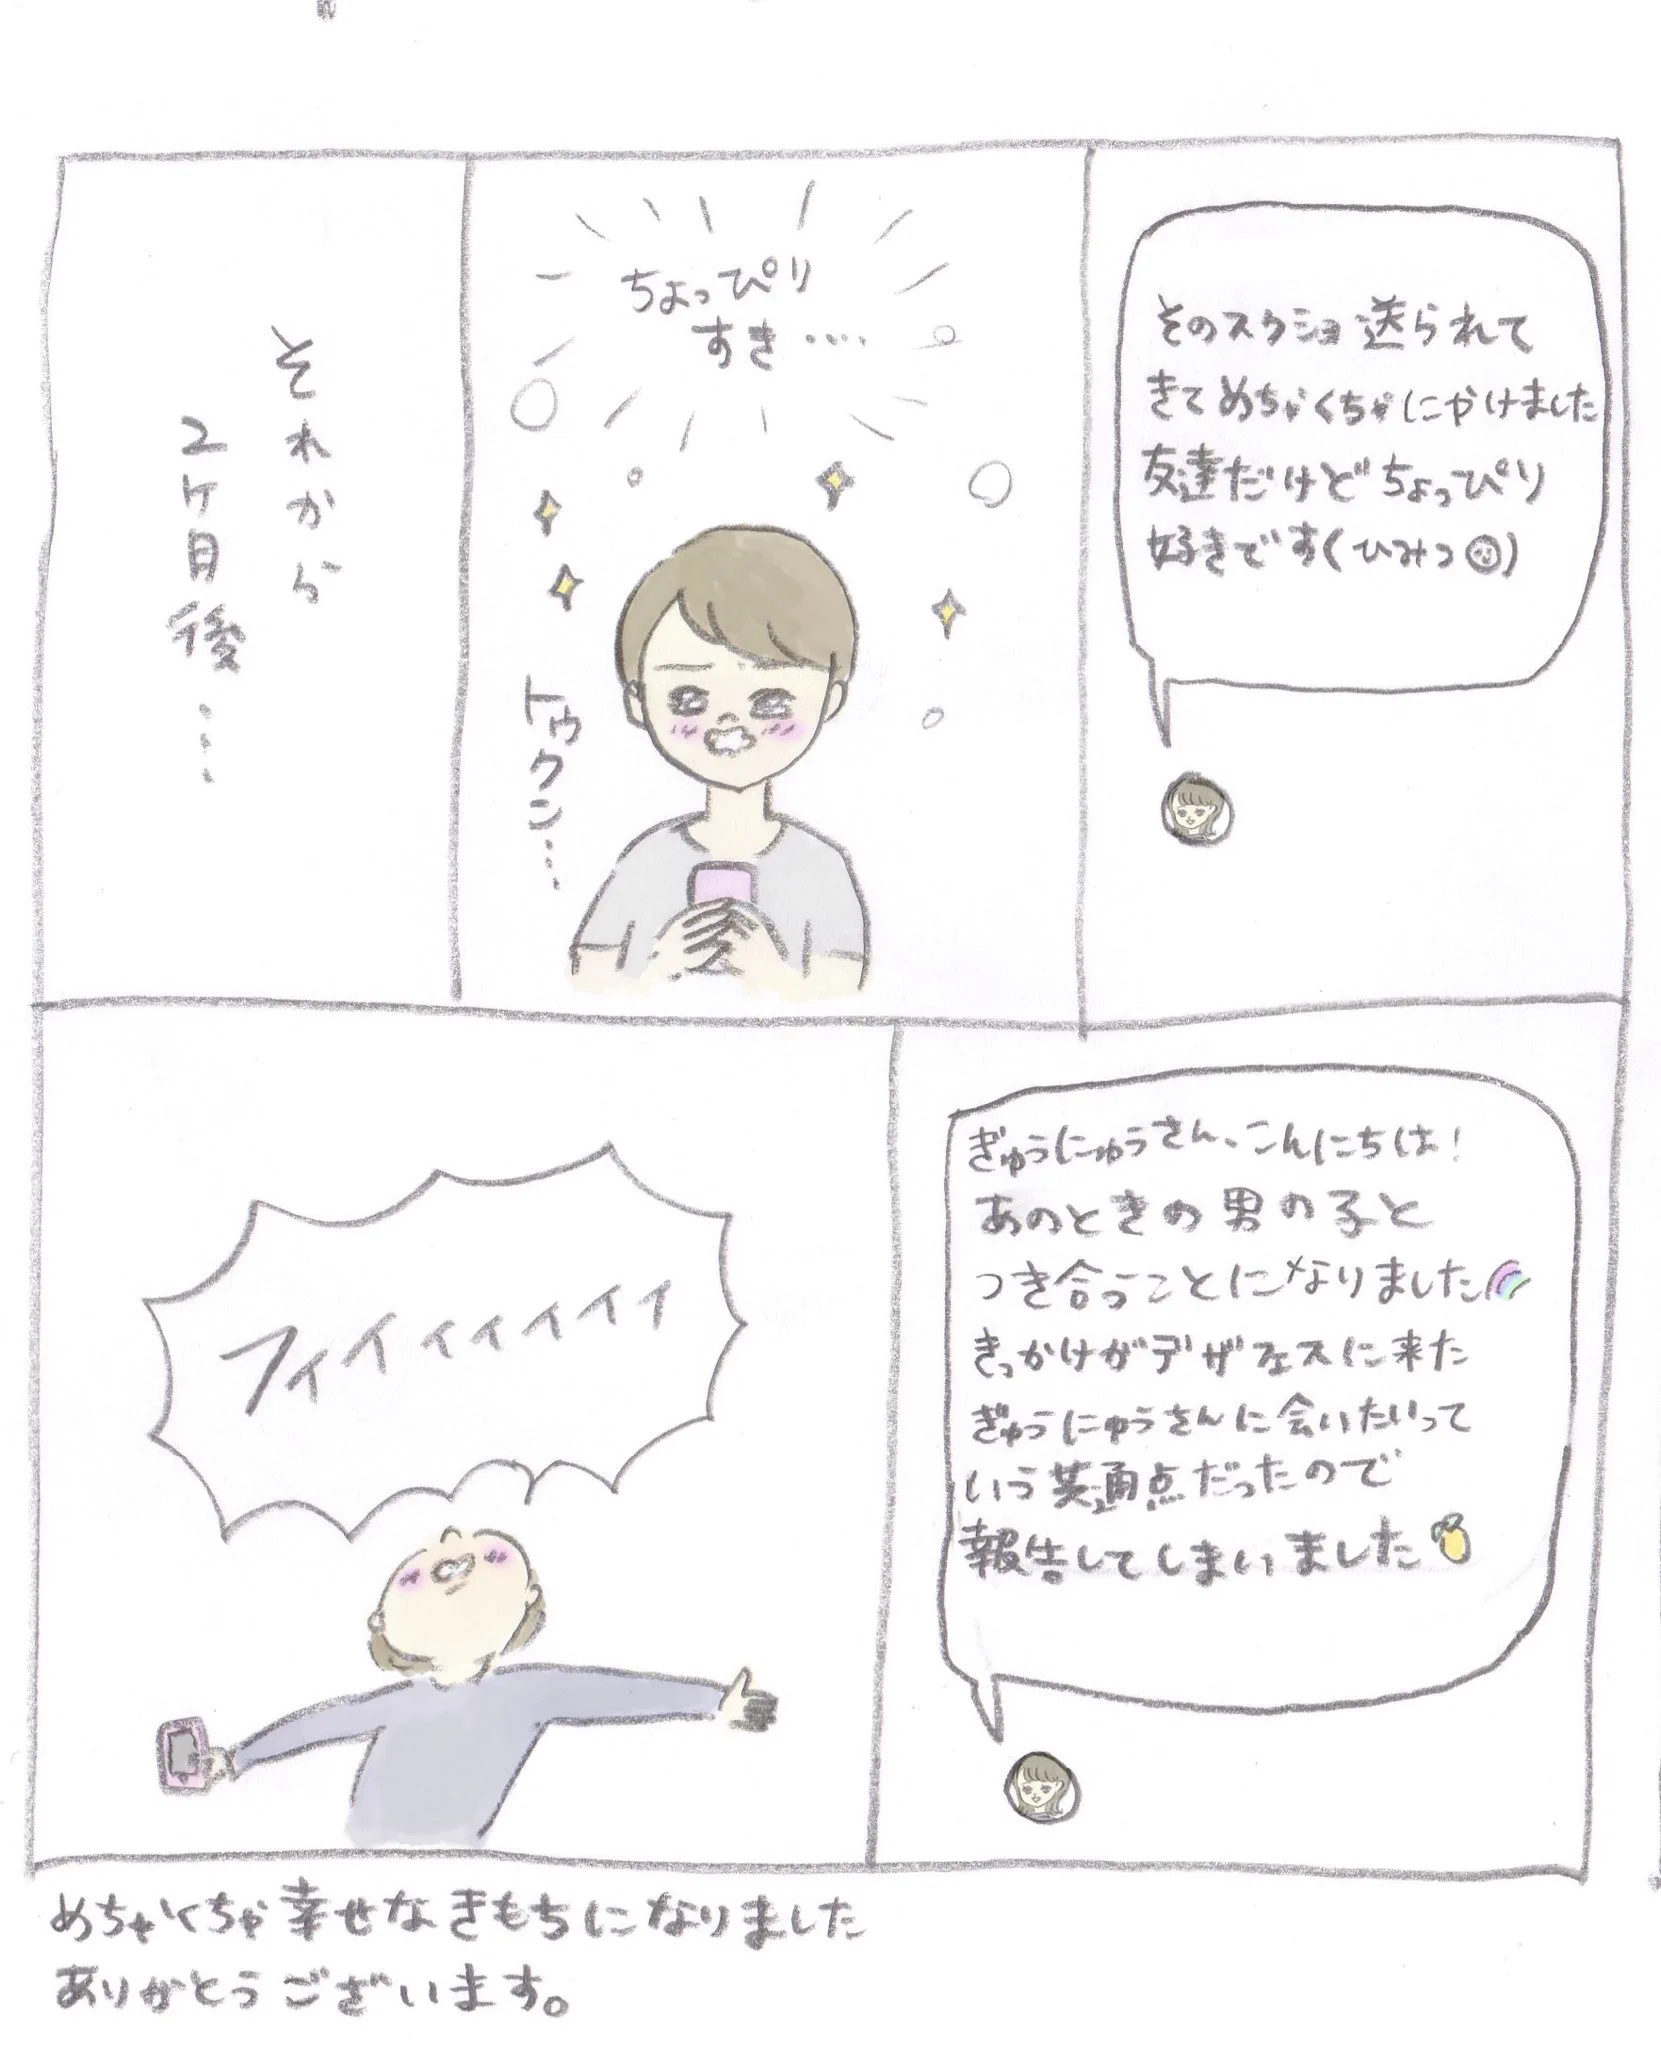 そのスクショ送られて
きてめちゃくちゃにやけました
友達だけどちょっぴり
好きです(ひみつ)
ちょっぴり
すき....
トゥクン...
それから
2ヶ月後...
ぎゅうにゅうさん、こんにちは!
あのときの男の子と
つき合うことになりました
きっかけがデザフェスに来た
ぎゅうにゅうさんに会いたいって
いう共通点だったので
報告してしまいました
フイイィィィィィ
めちゃくちゃ幸せなきもちになりました
ありがとうございます。